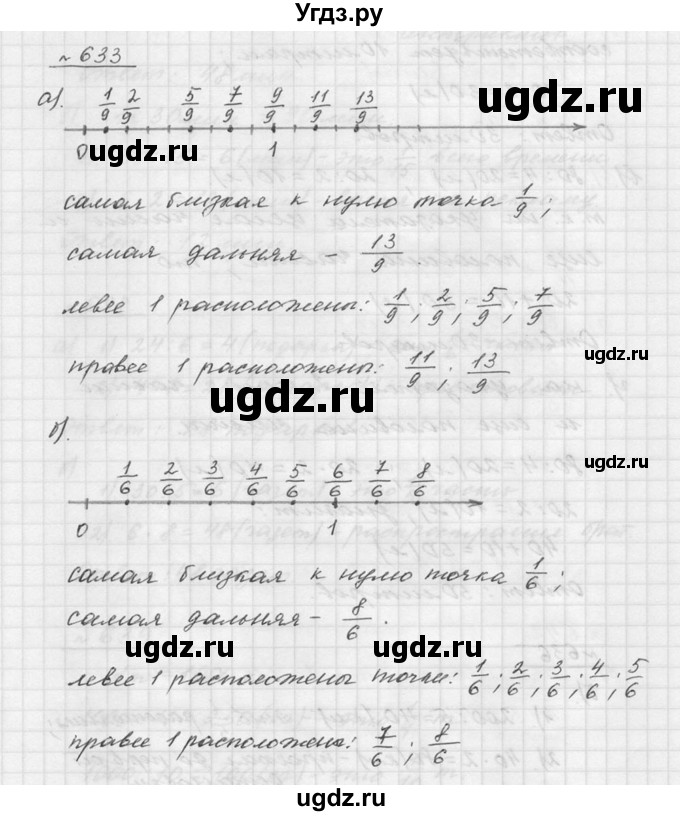 Угдз.ру
№ 633
а). 1/9 2/9 5/9 7/9 9/9 11/9 13/9
0 1
ugdz.ru ugdz.ru
самая близкая к нулю точка 1/9;
самая дальняя - 13/9.
ugdz.ru
левее 1 расположены: 1/9; 2/9; 5/9; 7/9
ugdz.ru
правее 1 расположены: 11/9; 13/9
ugdz.ru
б).
1/6 2/6 3/6 4/6 5/6 6/6 7/6 8/6
ugdz.ru
0 1
ugdz.ru
самая близкая к нулю точка 1/6;
самая дальняя - 8/6.
ugdz.ru ugdz.ru
левее 1 расположены точки: 1/6; 2/6; 3/6; 4/6; 5/6
правее 1 расположены: 7/6; 8/6
ugdz.ru
ugdz.ru
ugdz.ru